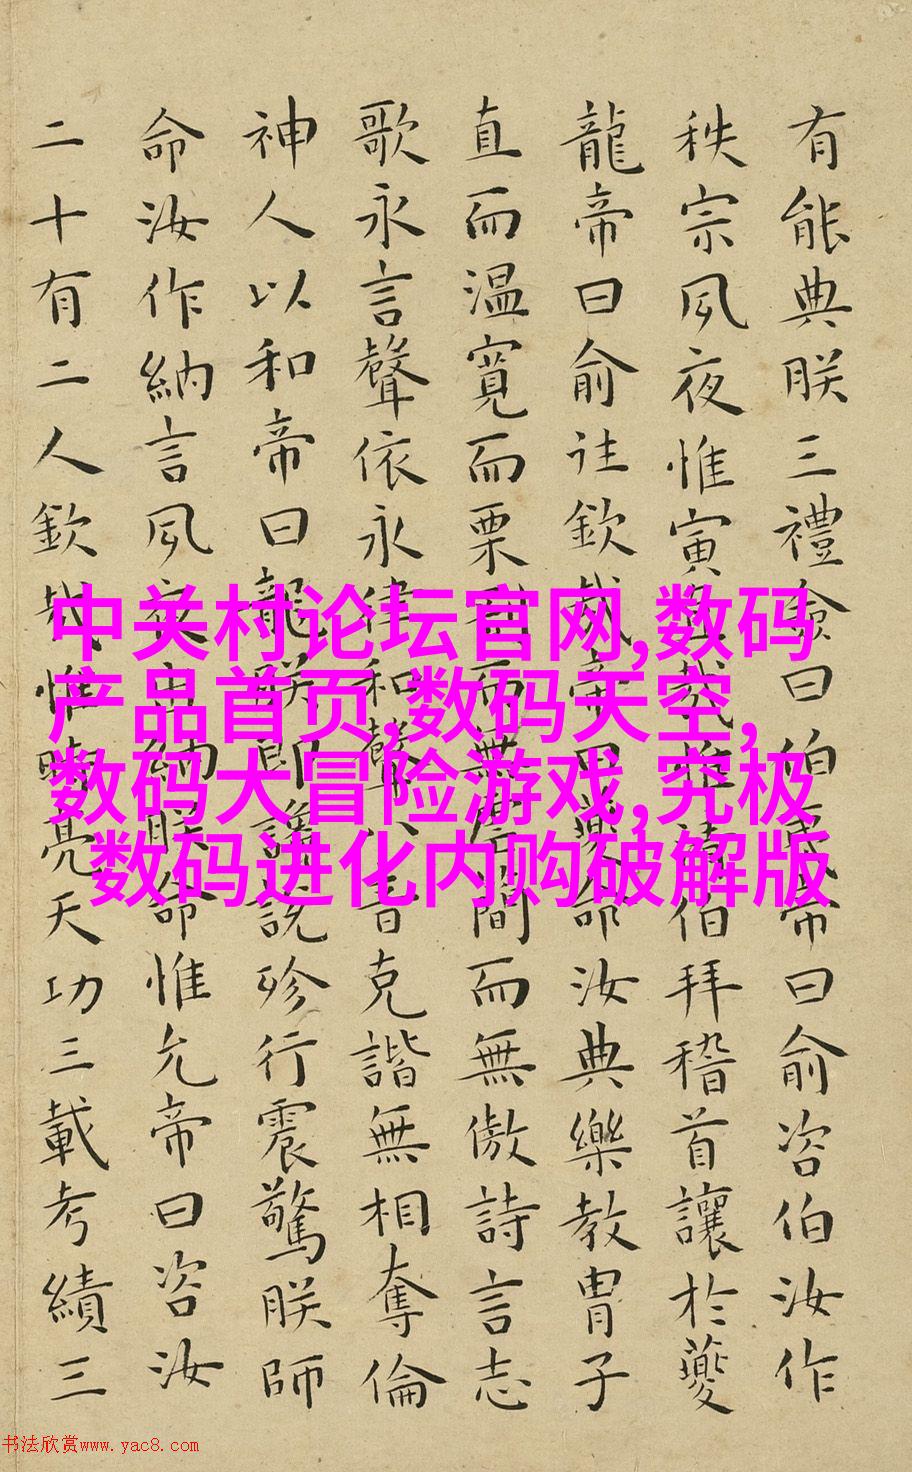 有能典朕三禮僉曰伯夷帝曰俞咨伯汝作
秩宗夙夜惟寅直哉惟清伯拜稽首讓於夔
龍帝曰俞往欽哉帝曰夔命汝典樂教冑子
直而温寬而栗剛而無虐簡而無傲詩言志
歌永言聲依永律和聲八音克諧無相奪倫
神人以和帝曰龍朕即讒說殄行震驚朕師
命汝作納言夙夜出納朕命惟允帝曰咨汝
二十有二人欽哉惟時亮天功三載考績三
中关村论坛官网,数码
产品首页,数码天空,
数码大冒险游戏,究极
数码进化内购破解版
书法欣赏www.yac8.com